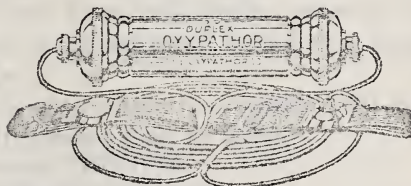 DUPLEX
OXYPATHOR